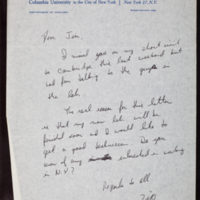 Columbia University in the City of New York | New York 27, N.Y.
DEPARTMENT OF
Dear Jon,
I would you on my short visit
to Cambridge this last weekend but
sat for talking to the people in
the lab.
The real reason for this letter
is that my new lab will be
funded soon and I would like to
get a good technician. Do you
know of any interested in working
in N.Y.?
Regards to all.